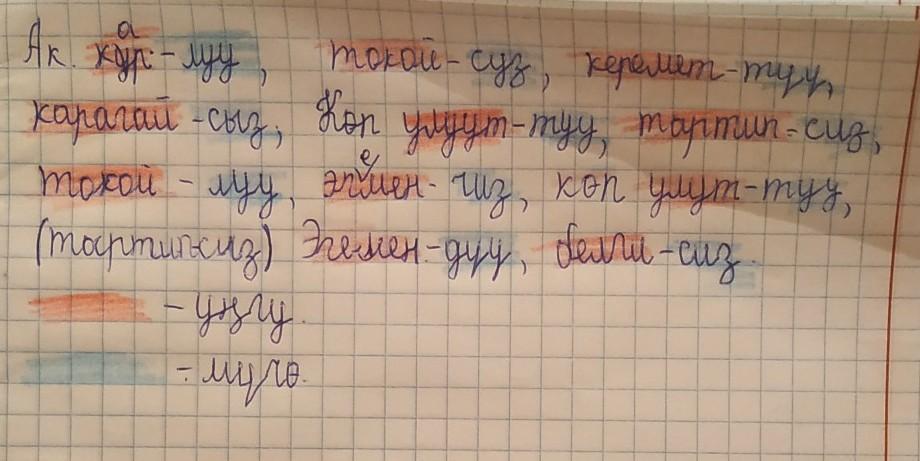 Ак. кар-луу, токой-суз, керемет-туу,
карагай-сыз; Көп улуут-туу, тартип-сиз,
токой-луу, эгемен-чиз, көп улут-туу,
(тартип-сиз) Эгемен-дуу, белги-сиз.
- уңгу.
- мүчө.